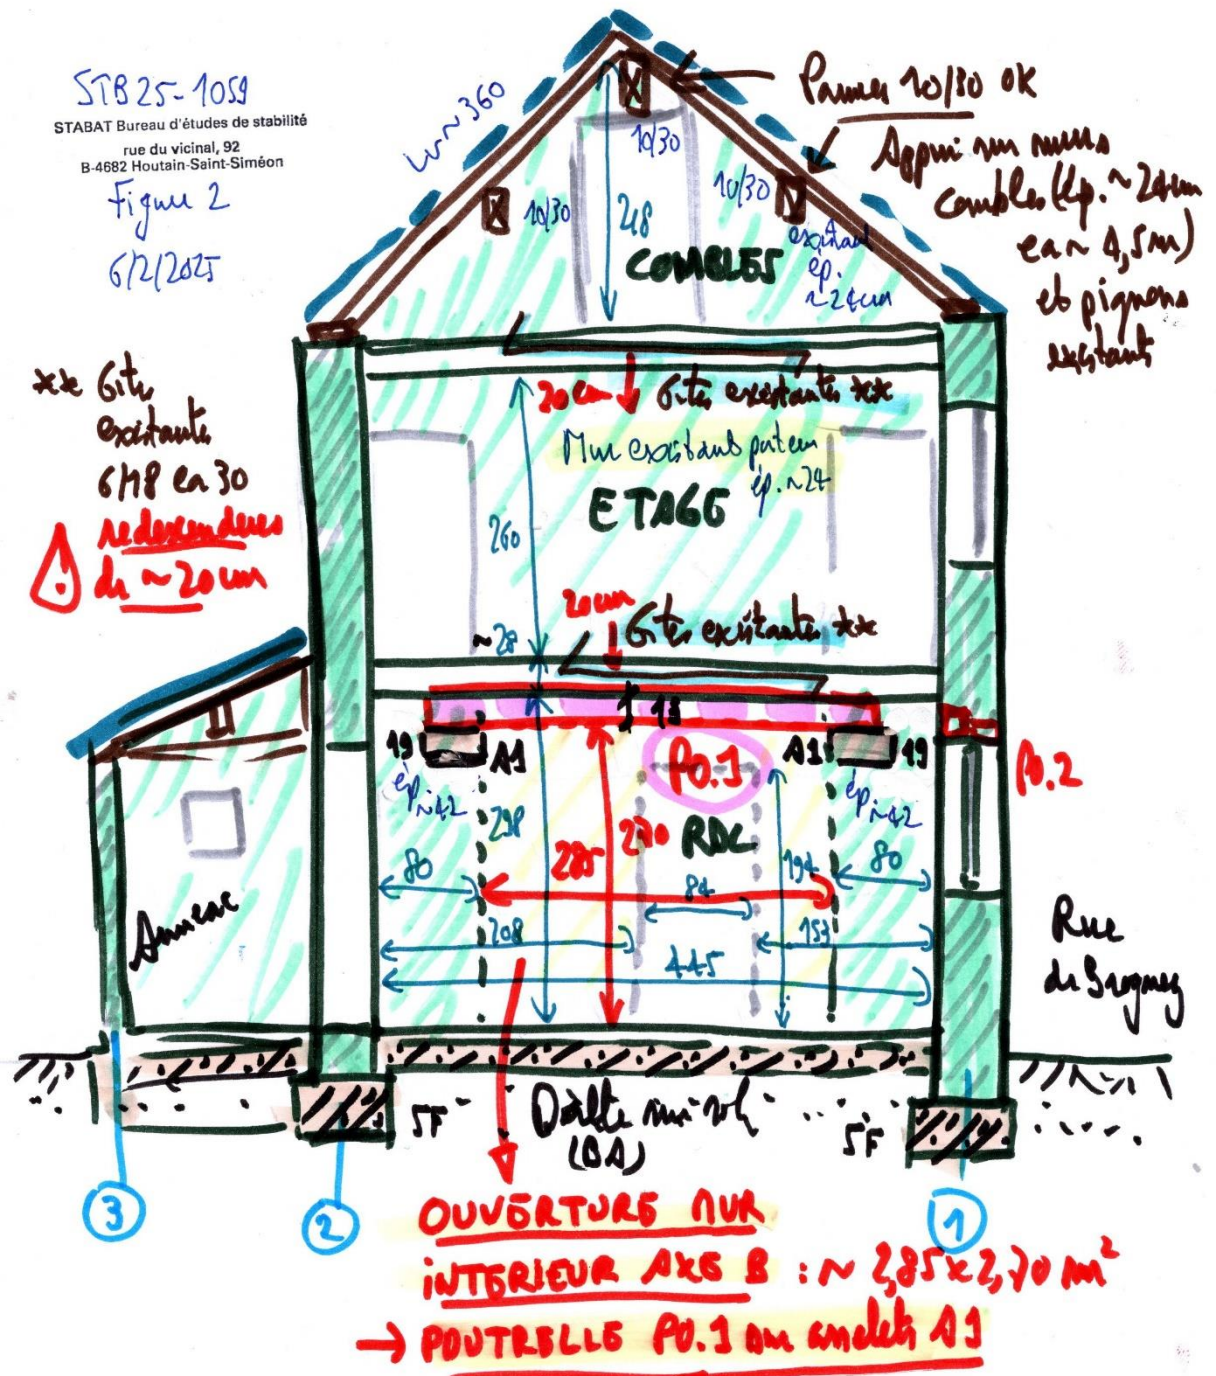 STB 25-1059
STABAT Bureau d'études de stabilité
rue du vicinal, 92
B-4682 Houtain-Saint-Siméon
Figure 2
6/2/2025
~360
Pannes 10/30 OK
Appui sur murs
combles (ép. ~24cm
en ~ 4,5m)
et pignons
existants
10/30
10/30
10/30
248
COMBLES
existant
ép.
~24cm
** Gites
existantes
6/18 en 30
redescendues
de ~20 cm
20cm
Gites existantes **
Mur existant porteur
ép. ~24
ETAGE
260
20cm
Gites existantes **
~28
13
19
A1
PO.1
A1
19
PO.2
ép. ~42
ép. ~42
298
285
270
RDC
194
80
84
80
208
153
445
Annexe
Rue
de
SF
Dalle sur sol
(BA)
SF
3
2
1
OUVERTURE MUR
INTERIEUR AXE B : ~ 2,85 x 2,70 m²
→ POUTRELLE PO.1 sur A1